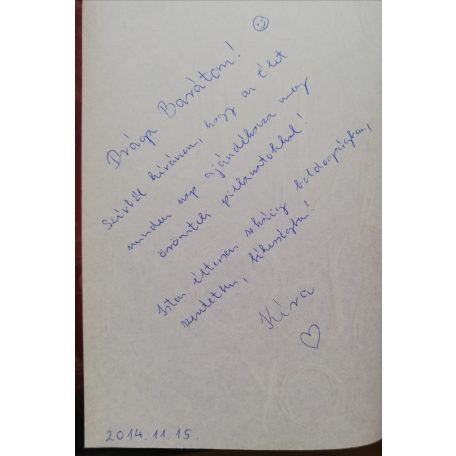 Drága Barátom!
Szívből kívánom, hogy az élet
minden nap ajándékozza meg
örömteli pillanatokkal!
Isten éltessen sokáig boldogságban,
szeretetben, békességben!
Kira
2014.11.15.